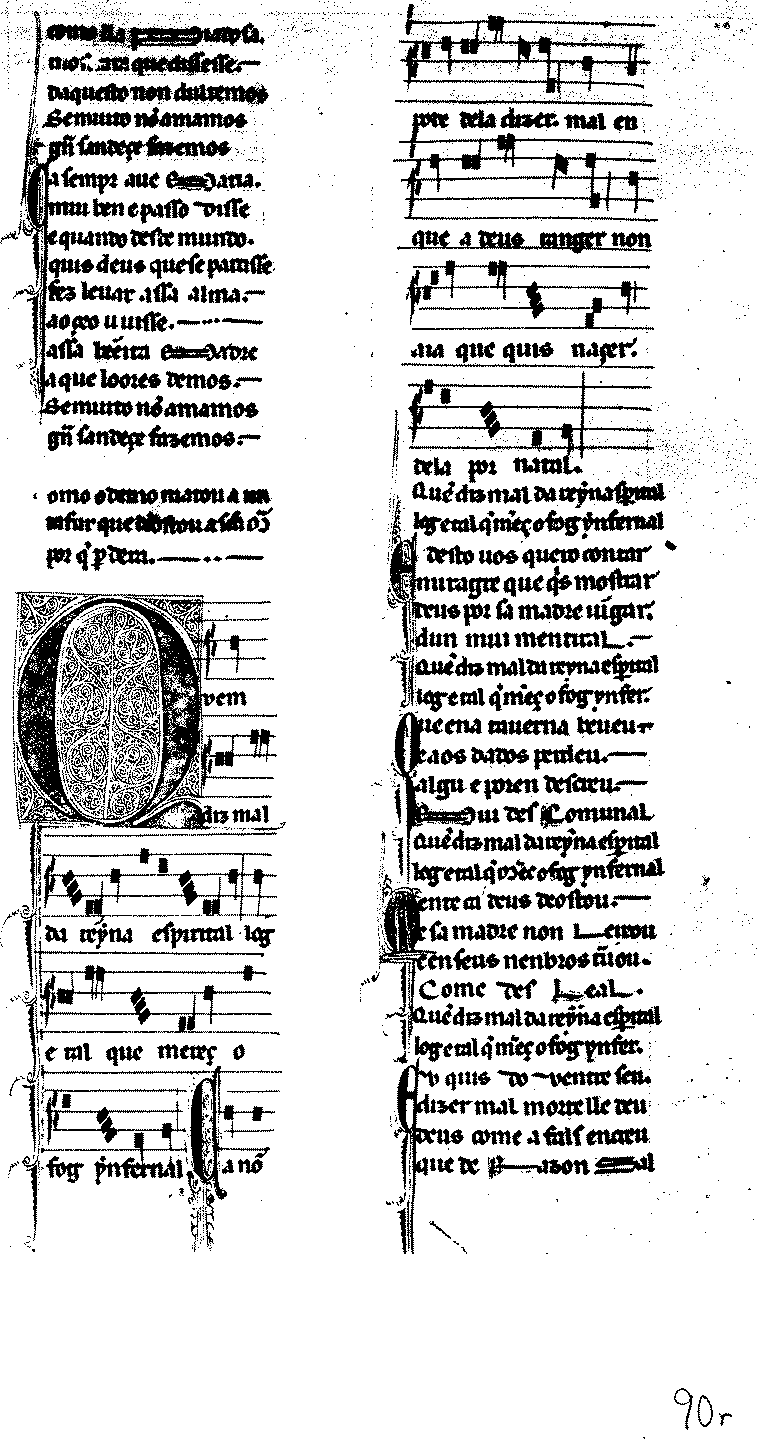 como lla uirtuosa.
mos. ata que dissesse.
daquesto non dultemos
Se muito nõ amamos
gñ sandeçe fazemos
a sempr aue Maria.
mui ben e passo disse
e quando deste mundo.
quis deus que se partisse
fez leuar assa alma.
ao çeo u uisse.
assa bẽeita Madre
a que loores demos.
Se muito nõ amamos
gñ sandeçe fazemos.
omo o demo matou a un
por q̃ p̃ dem.
Q
vem
diz mal
da reỹna espirital log
e tal que mereç o
fog ỹnfernal
Ca nõ
pode dela dizer. mal en
que a deus tanger non
aia que quis naçer.
dela por natal.
Quẽ diz mal da reỹna espirital
log e tal q̃ m̃eç o fog ỹnfernal
E desto uos quero contar
miragre que q̃s mostrar
deus por sa madre uĩgar.
dun mui mental.
Quẽ diz mal da reyna espirital
log e tal q̃ m̃eç o fog ynfer.
Que ena tauerna beueu
e aos dados perdeu.
algu e poren descreu.
Mui des Comunal
Quẽ diz mal da reỹna espirital
log e tal q̃ m̃eç o fog ynfernal
ente a deus deostou.
e sa madre non Leixou
e en seus nenbros tãiou.
Come des Leal.
Quẽ diz mal da reỹna espirital
log e tal q̃ m̃eç o fog ynfer.
E u quis do uentre seu.
dizer mal morte lle deu
deus come a fals encreu
que de Razon sal
90r